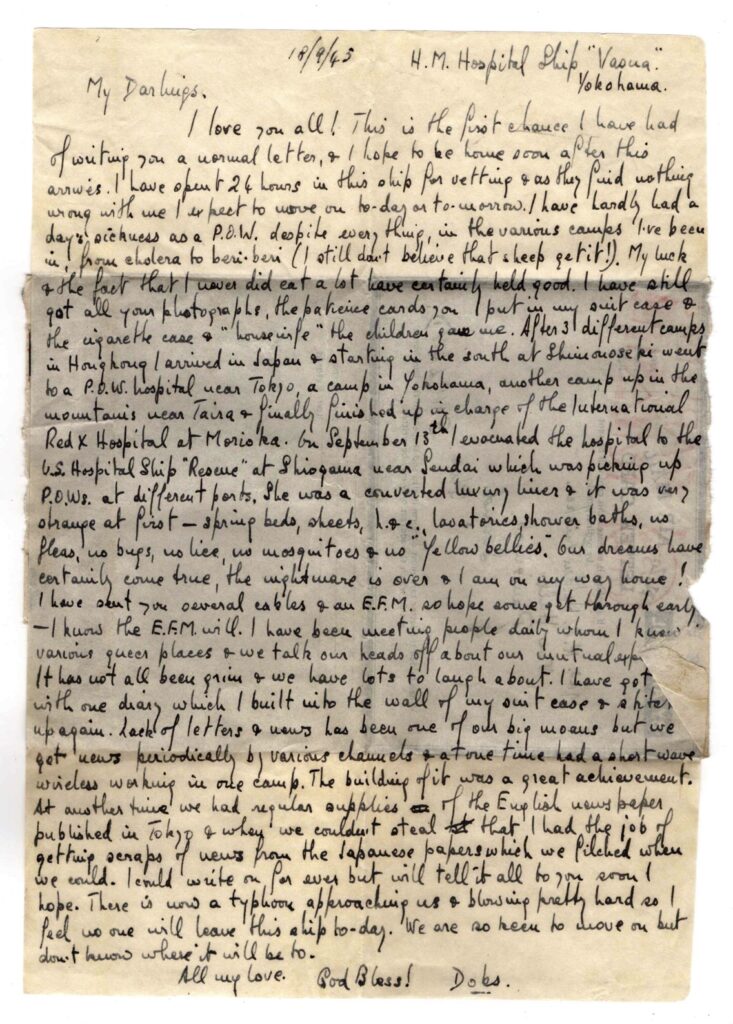 18/9/45 H.M. Hospital Ship "Vasna"
Yokohama.
My Darlings.
I love you all! This is the first chance I have had
of writing you a normal letter, & I hope to be home soon after this
arrives. I have spent 24 hours in this ship for vetting & as they find nothing
wrong with me I expect to move on to-day or to-morrow. I have hardly had a
day's sickness as a P.O.W. despite everything, in the various camps I've been
in, from cholera to beri-beri (I still don't believe that sheep get it!). My luck
& the fact that I never did eat a lot have certainly held good. I have still
got all your photographs, the patience cards you I put in my suit case &
the cigarette case & "housewife" the children gave me. After 3 different camps
in Hongkong I arrived in Japan & starting in the south at Shimonoseki went
to a P.O.W. hospital near Tokyo, a camp in Yokohama, another camp up in the
mountains near Taira & finally finished up in charge of the International
Red X Hospital at Morioka. On September 13th I evacuated the hospital to the
U.S. Hospital Ship "Rescue" at Shiogama near Sendai which was picking up
P.O.Ws. at different ports. She was a converted luxury liner & it was very
strange at first – spring beds, sheets, h. & c., lavatories, shower baths, no
fleas, no bugs, no lice, no mosquitoes & no "Yellow bellies". Our dreams have
certainly come true, the nightmare is over & I am on my way home!
I have sent you several cables & an E.F.M. so hope some get through early
– I know the E.F.M. will. I have been meeting people daily whom I knew
various queer places & we talk our heads off about our mutual
It has not all been grim & we have lots to laugh about. I have got
with one diary which I built into the wall of my suit case &
up again. Lack of letters & news has been one of our big moans but we
get news periodically by various channels & at one time had a short wave
wireless working in one camp. The building of it was a great achievement.
At another time we had regular supplies of the English newspaper
published in Tokyo & when we couldn't steal that I had the job of
getting scraps of news from the Japanese papers which we filched when
we could. I could write on for ever but will tell it all to you soon I
hope. There is now a typhoon approaching us & blowing pretty hard so I
feel no one will leave this ship to-day. We are so keen to move on but
don't know where it will be to.
All my love. God Bless! Dobs.